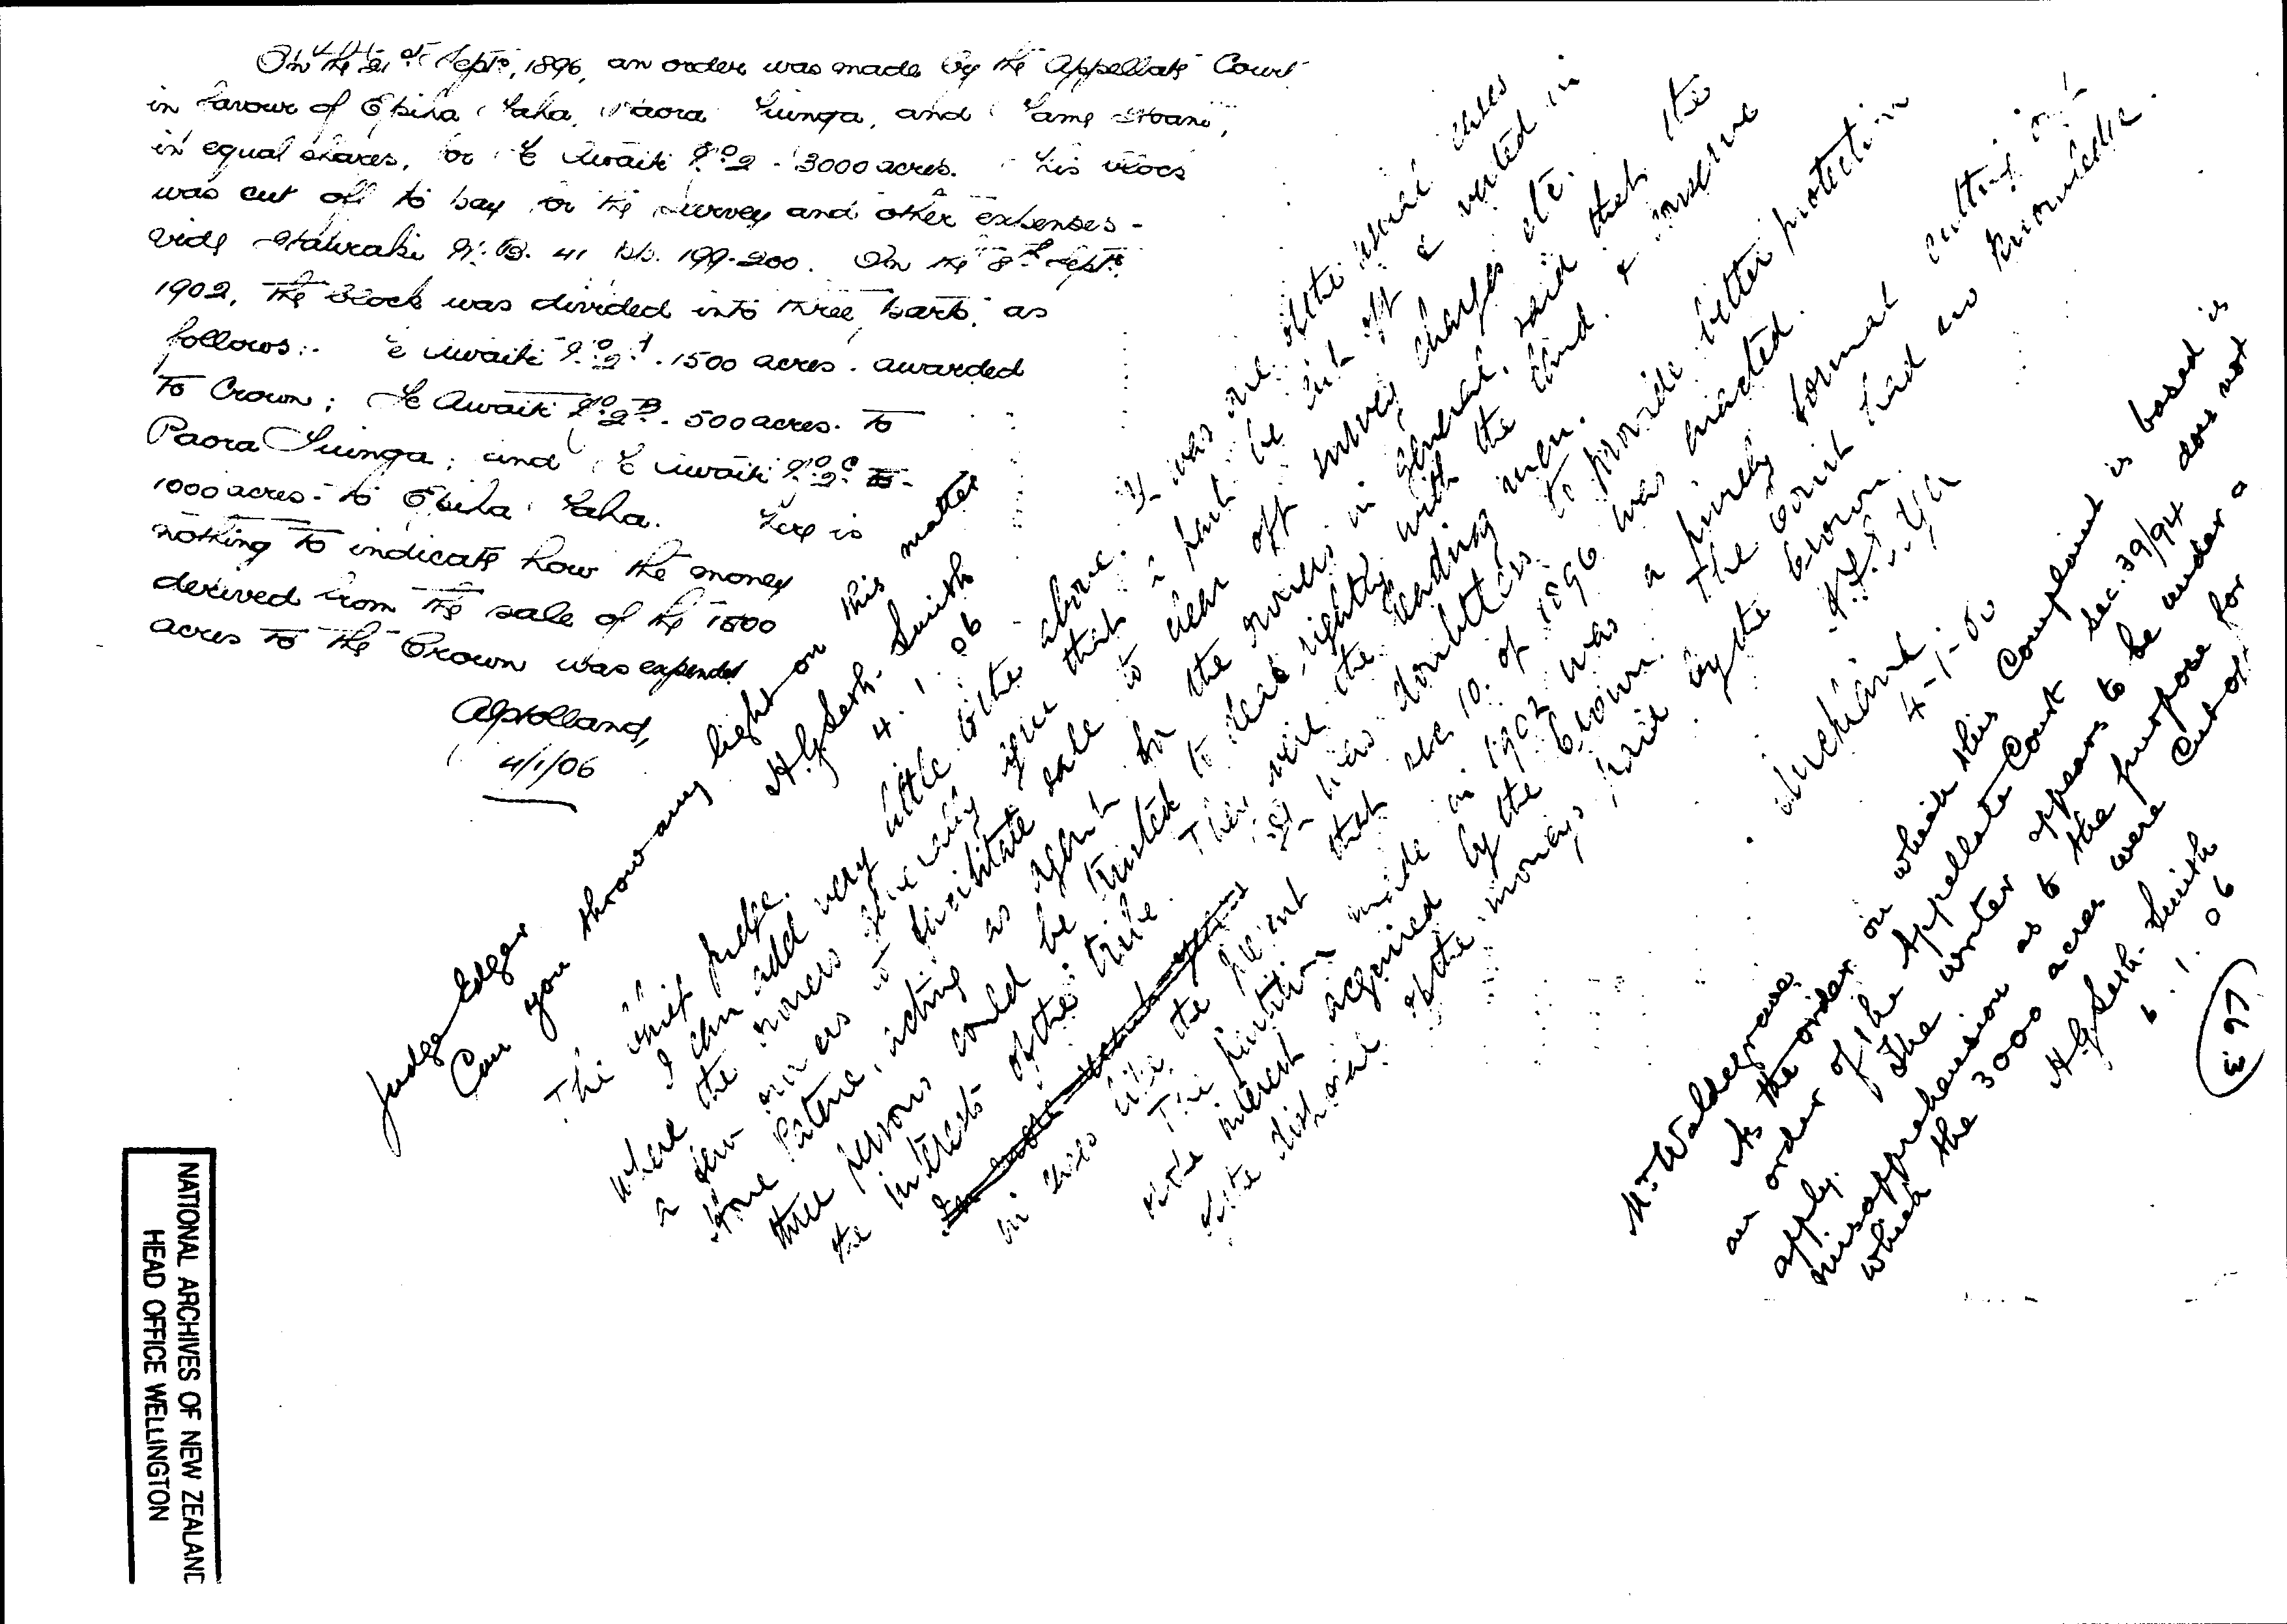 On the 21st Septr, 1896, an order was made by the Appellate Court
in favour of Epiha Taha, Paora Tiunga, and Hoani,
in equal shares, for Te Awaiti No 2 - 3000 acres. This block
was cut off to pay for the survey and other expenses -
vide Hauraki M.B. 41 pp. 199-200. On the 8th Septr
1902, the block was divided into three parts, as
follows:- Te Awaiti No 2A. 1500 acres. awarded
to Crown; Te Awaiti No 2B. 500 acres. to
Paora Tiunga; and Te Awaiti No 2C
1000 acres - to Epiha Taha. There is
nothing to indicate how the money
derived from the sale of the 1500
acres to the Crown was expended
AGHolland,
4/1/06
Judge Edger
Can you throw any light on this matter
H.G. Seth-Smith
4.1.06
The Chief Judge.
I can add very little to the above. It was one of the usual cases
where the owners generally agree that a part be cut off & vested in
a few owners to facilitate sale to clear off survey charges etc.
Hone Patene, acting as agent for the owners in general, said that the
three persons could be trusted to deal rightly with the land & conserve
the interests of the tribe. They were the leading men.
It was doubtless to provide better protection
in cases like the present that sec 10. of 1896 was enacted.
The partition made in 1902 was a purely formal cutting out
of the interest acquired by the Crown. The Court had no knowledge
of the disposal of the moneys paid by the Crown.
Auckland
4-1-06
Mr Waldegrave
As the order on which this Complaint is based is
an order of the Appellate Court sec. 39/94 does not
apply. The writer appears to be under a
misapprehension as to the purpose for
which the 3000 acres were cut off
H.G. Seth-Smith
6.1.06
E 97
NATIONAL ARCHIVES OF NEW ZEALAND
HEAD OFFICE WELLINGTON